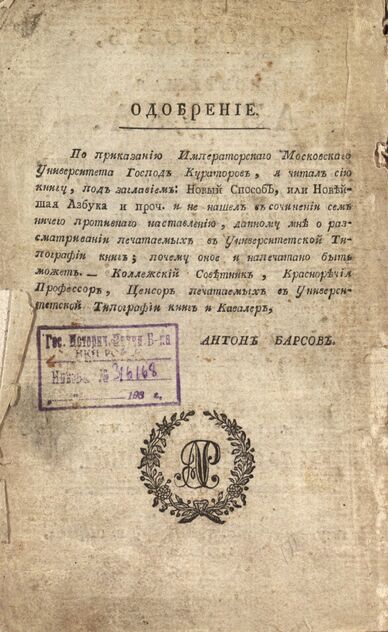 ОДОБРЕНІЕ.
По приказанію Императорскаго Московскаго
Университета Господъ Кураторовъ, я читалъ сію
книгу, подъ заглавіемъ: Новый Способъ, или Новѣй-
шая Азбука и проч. и не нашелъ въ сочиненіи семъ
ничего противнаго наставленію, данному мнѣ о раз-
сматриваніи печатаемыхъ въ Университетской Ти-
пографіи книгъ; почему оное и напечатано быть
можетъ. — Коллежскій Совѣтникъ, Краснорѣчія
Профессоръ, Ценсоръ печатаемыхъ въ Универси-
тетской Типографіи книгъ и Кавалеръ,
АНТОНЪ БАРСОВЪ.
Гос. Историч. Б-ка
НКП РСФСР
№ 316168
193 г.